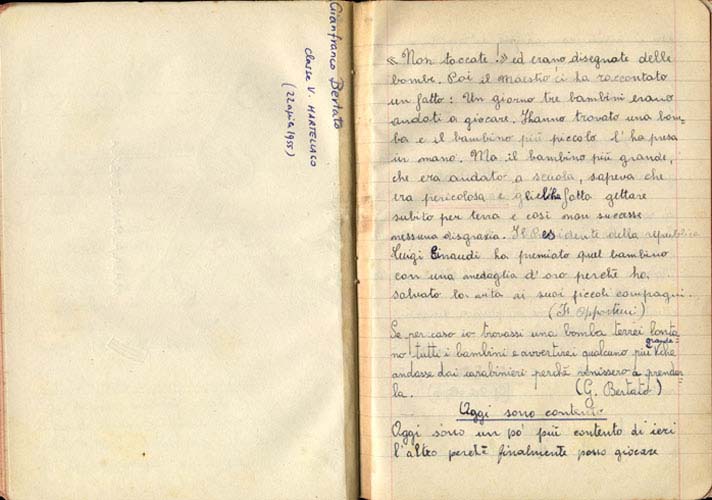 Gianfranco Bertato
classe V. MARTELLAGO
(22 aprile 1955)
« Non toccate! » ed erano disegnate delle
bombe. Poi il Maestro ci ha raccontato
un fatto: Un giorno tre bambini erano
andati a giocare. Hanno trovato una bom-
ba e il bambino più piccolo l'ha presa
in mano. Ma il bambino più grande,
che era andato a scuola, sapeva che
era pericolosa e gliel'ha fatta gettare
subito per terra e così non successe
nessuna disgrazia. Il Presidente della repubblica
Luigi Einaudi ha premiato quel bambino
con una medaglia d'oro perchè ha
salvato la vita ai suoi piccoli compagni.
Se per caso io trovassi una bomba terrei lonta
no tutti i bambini e avvertirei qualcuno più grande che
andasse dai carabinieri perchè venissero a prender
la. (G. Bertato)
Oggi sono contento.
Oggi sono un po' più contento di ieri
l'altro perchè finalmente posso giocare